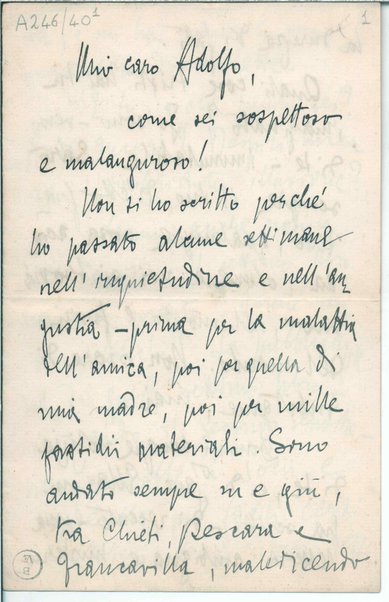 A246/40¹
1
Mio caro Adolfo,
come sei sospettoso
e malauguroso!
Non ti ho scritto perché
ho passato alcune settimane
nell'inquietudine e nell'an
gustia – prima per la malattia
dell'amica, poi per quella di
mia madre, poi per mille
fastidii materiali. Sono
andato sempre su e giù,
tra Chieti, Pescara e
Francavilla, maledicendo